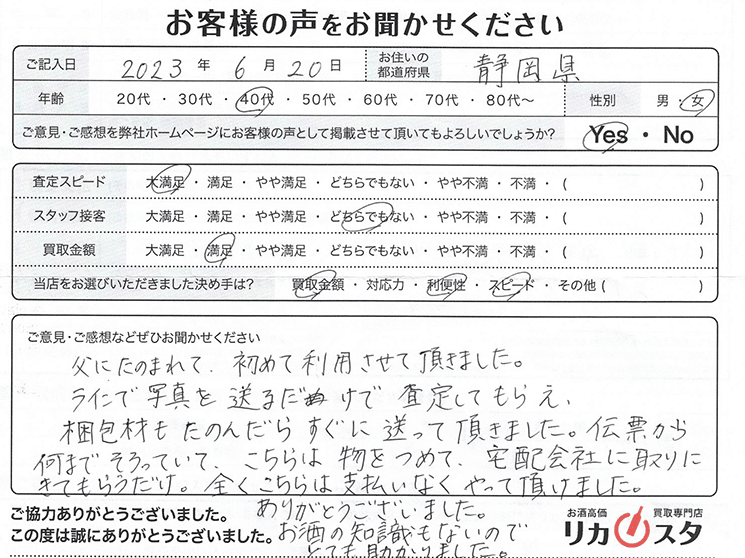 お客様の声をお聞かせください
ご記入日 2023 年 6 月 20 日 お住いの都道府県 静岡県
年齢 20代 ・ 30代 ・ 40代 ・ 50代 ・ 60代 ・ 70代 ・ 80代〜 性別 男 ・ 女
ご意見・ご感想を弊社ホームページにお客様の声として掲載させて頂いてもよろしいでしょうか? Yes ・ No
査定スピード 大満足 ・ 満足 ・ やや満足 ・ どちらでもない ・ やや不満 ・ 不満 ・ ( )
スタッフ接客 大満足 ・ 満足 ・ やや満足 ・ どちらでもない ・ やや不満 ・ 不満 ・ ( )
買取金額 大満足 ・ 満足 ・ やや満足 ・ どちらでもない ・ やや不満 ・ 不満 ・ ( )
当店をお選びいただきました決め手は? 買取金額 ・ 対応力 ・ 利便性 ・ スピード ・ その他 ( )
ご意見・ご感想などぜひお聞かせください
父にたのまれて、初めて利用させて頂きました。
ラインで写真を送るだけで査定してもらえ、
梱包材もたのんだらすぐに送って頂きました。伝票から
何までそろっていて、こちらは物をつめて、宅配会社に取りに
きてもらうだけ。全くこちらは支払いなくやって頂けました。
ありがとうございました。
お酒の知識もないので
とても助かりました。
ご協力ありがとうございました。
この度は誠にありがとうございました。
お酒高価 買取専門店
リカスタ